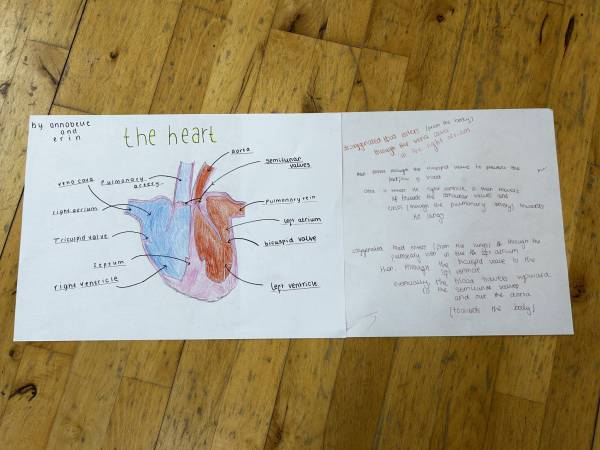 by annabelle
and
erin
the heart
aorta
semilunar
valves
vena cava
Pulmonary
artery
right atrium
Tricuspid valve
Septum
right ventricle
Pulmonary vein
left atrium
bicuspid valve
left ventricle
deoxygenated blood enters (from the body)
through the vena cava
in the right atrium
through the tricuspid valve to prevent the
backflow of blood
once in the right ventricle it then travels
up towards the semilunar valves and
exits (through the pulmonary artery) towards
the lungs
oxygenated blood enters (from the lungs) through the
pulmonary vein in the left atrium
then through the bicuspid valve to the
left ventricle
eventually the blood travels upward
the semilunar valves
and out the aorta
(towards the body)